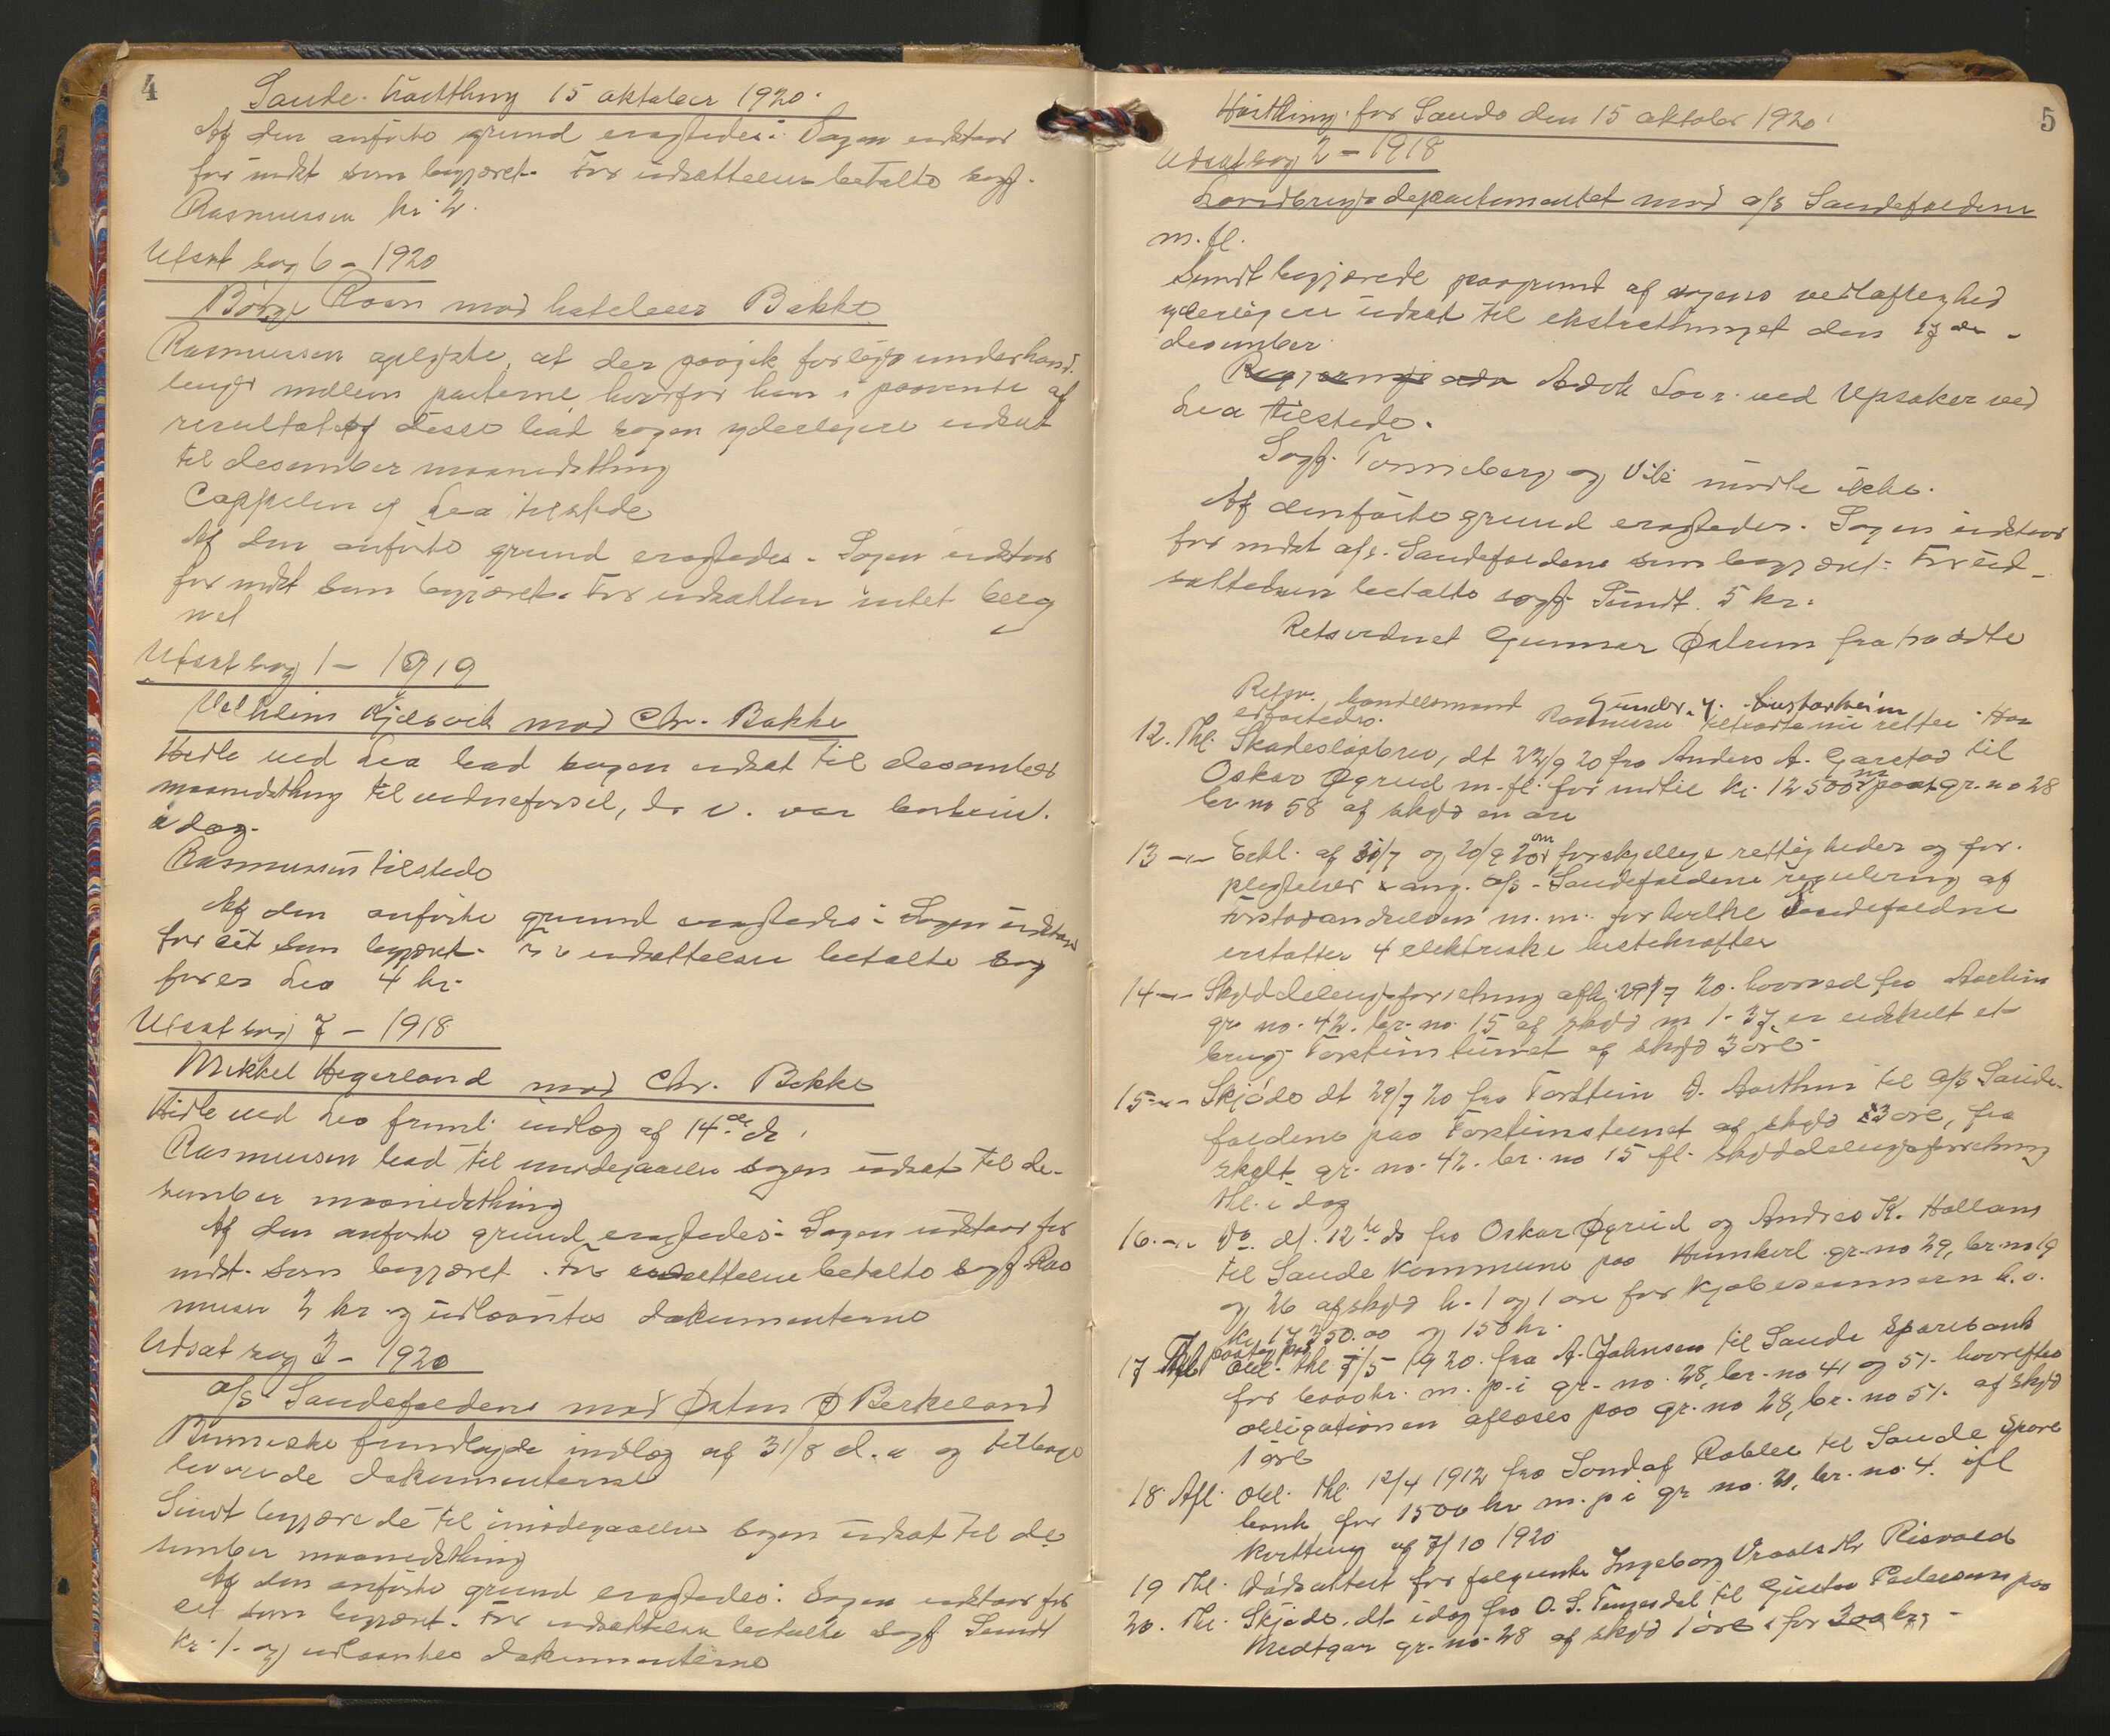 4
Saude. høstthing 15 oktober 1920.
Af den anførte grund eragtedes: Sagen utstaar
for indst som begjæret. For utsættelsen betalte sagf.
Rasmussen kr. 2.
Utsat sag 6 - 1920
Børge Roen mod hoteleier Bakke
Rasmussen oplyste, at der paagik forligsunderhand-
linger mellem parterne, hvorfor han i paavente af
resultatet af disse bad sagen yderligere utsat
til desember maanedsthing
Cappelen og Lea tilstede
Af den anførte grund eragtedes. Sagen utstaar
for indst som begjæret. For utsætten intet bereg
net
Utsat sag 1 - 1919
Vilhelm Kjelsvik mod Chr. Bakke
Hidle ved Lea bad sagen utsat til desember
maanedsthing til vidneførsel, da v. var
i dag.
Rasmussen tilstede
Af den anførte grund eragtedes: Sagen utstaar
for cit som begjæret. For utsættelsen betalte sag
fører Lea 4 kr.
Utsat sag 7 - 1918
Mikkel Hegerland mod Chr. Bakke
Hidle ved Lea freml. indlæg af 14de ds,
Rasmussen bad til imødegaaelse sagen utsat til de-
sember maanedsthing
Af den anførte grund eragtedes: Sagen utstaar for
indst. som begjæret. For utsættelsen betalte sagf. Ras
mussen 2 kr. og utlaantes dokumenterne
Udsat sag 3 - 1920
a/s Saudefaldene mod Østen Ø Berkeland
fremlagde indlæg af 31/8 d.a og tilbage
leverede dokumenterne
Sundt begjærede til imødegaaelse sagen utsat til de-
sember maanedsthing
Af den anførte grund eragtedes: Sagen utstaar for
cit som begjæret. For utsættelsen betalte sagf Sundt
kr. 1. og utlaantes dokumenterne
5
Høstthing for Saude den 15 oktober 1920.
Udsat sag 2 - 1918
Landbrugsdepartementet mod a/s Saudefaldene
m. fl.
Sundt begjærede paagrund af sagens vidløftighed
yderligere utsat til ekstrathinget den 17de
desember.
Advok Soer. ved Upsaker ved
Lea tilstede.
Sagf. Tønneberg og Vik mødte ikke.
Af den førte grund eragtedes. Sagen utstaar
for indst a/s. Saudefaldene som begjæret. For ud-
sættelsen betalte sagf. Sundt. 5 kr.
Retsvidnet Gunnar Østrem fratraadte
Retsv. handelsmand Gunder Y. Austarheim
Rasmussen tiltraadte nu retten Han
12. Thl. Skadesløsbrev, dt 22/9 20 fra Anders A. Garstad til
Oskar Øgreid m. fl. for indtil kr. 12500 m paat gr. no 28
br no 58 af skyld en øre
13 -"- Erkl. af 31/7 og 20/9 20 om forskjellige rettigheder og for-
pligtelser ang. a/s - Saudefaldene regulering af
m. m. for hvilke Saudefaldne
erstatter 4 elektriske hestekræfter
14 -"- Skylddelingsforretning afh. 29/7 20. hvorved fra Aarthun
gr. no. 42. br. no 15 af skyld m 1.37 er utskilt et
brug Torsteinstunet af skyld 3 øre
15 -"- Skjøde dt 29/7 20 fra Torstein D. Aarthun til a/s Saude-
faldene paa Torsteinstunet af skyld 3 øre, fra
skylt gr. no. 42. br. no 15 fl. skylddelingsforretning
thl. i dag
16. -"- Do. dt. 12te ds fra Oskar Øgreid og Andreas K. Halland
til Saude kommune paa gr. no 29, br. no 19
og 26 af skyld h. 1 og 1 øre for kjøbesummen h. o.
kr 17 350.00 og 150 kr.
17 obl. thl. 7/5 1920. fra A. Johnsen til Saude Sparebank
for 6000 kr. m. p. i gr. no. 28, br. no 41 og 51. hvorefter
obligationen afløses paa gr. no 28, br. no 51. af skyld
1 øre
18 Afl. Obl. thl. 12/4 1912 fra Rabbe til Saude Spare
bank for 1500 kr m. p i gr no. 21, br. no. 4. ifl
kvittering af 7/10 1920
19 Thl. Dødsattest for Ingeborg Vraalsdtr Risvold
20. Thl. Skjøde, dt. idag fra O. S. Tengesdal til Gustav Pedersen paa
gr. no. 28 af skyld 1 øre for 300 kr.